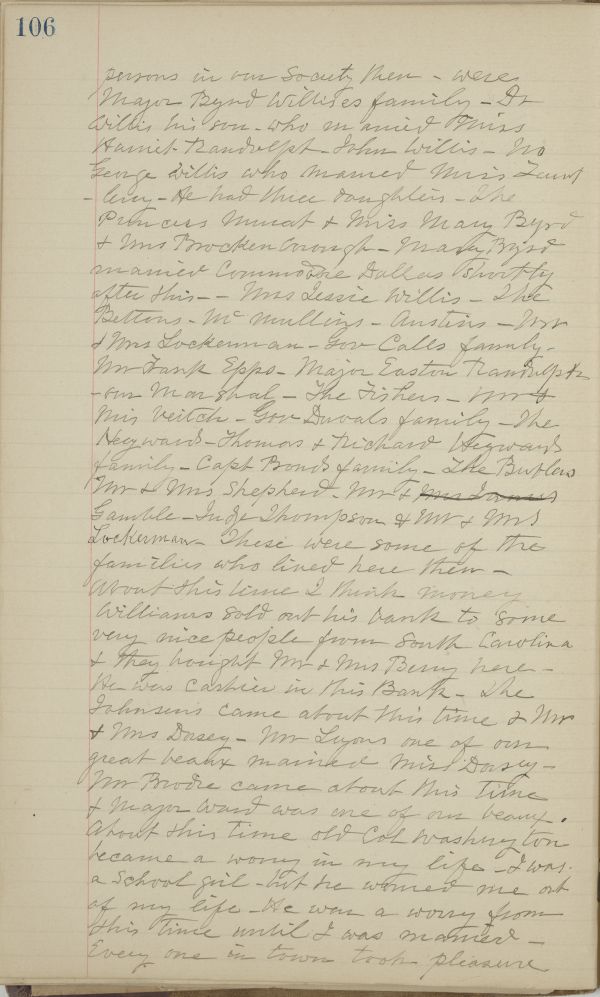 106
persons in our Society then - were
Major Byrd Willises family - Dr
Willis his son - who married Miss
Harriet Randolph - John Willis -
George Willis who married Miss Faunt
- leroy - He had three daughters - The
Princess Murat & Miss Mary Byrd
& Mrs Brockenborough - Mary Byrd
married Commodore Dallas shortly
after this - - Mrs Lessie Willis - The
Bettons - Mc Mullins - Austins - Mr
& Mrs Lockerman - Gov Calls family -
Mr Frank Epps - Major Easton Randolph
- our Marshal - The Fishers - Mr &
Mrs Veitch - Gov Duvals family - The
Heywards - Thomas & Richard Heywards
family - Capt Bonds family - The Butlers
Mr & Mrs Shepherd - Mr &
Gamble - Judge Thompson & Mr & Mrs
Lockerman - These were some of the
families who lived here then -
About this time I think money
Williams sold out his bank to some
very nice people from South Carolina
& they bought Mr & Mrs Berry here -
He was Cashier in this Bank - The
Johnsens came about this time & Mr
& Mrs Dasey - Mr Lyons one of our
great beaux married Miss Dasey -
Mr Brodie came about this time
& Major Ward was one of our beaux.
About this time old Col Washington
became a worry in my life - I was
a School girl - but he worried me out
of my life - He was a worry from
this time until I was married -
Every one in town took pleasure